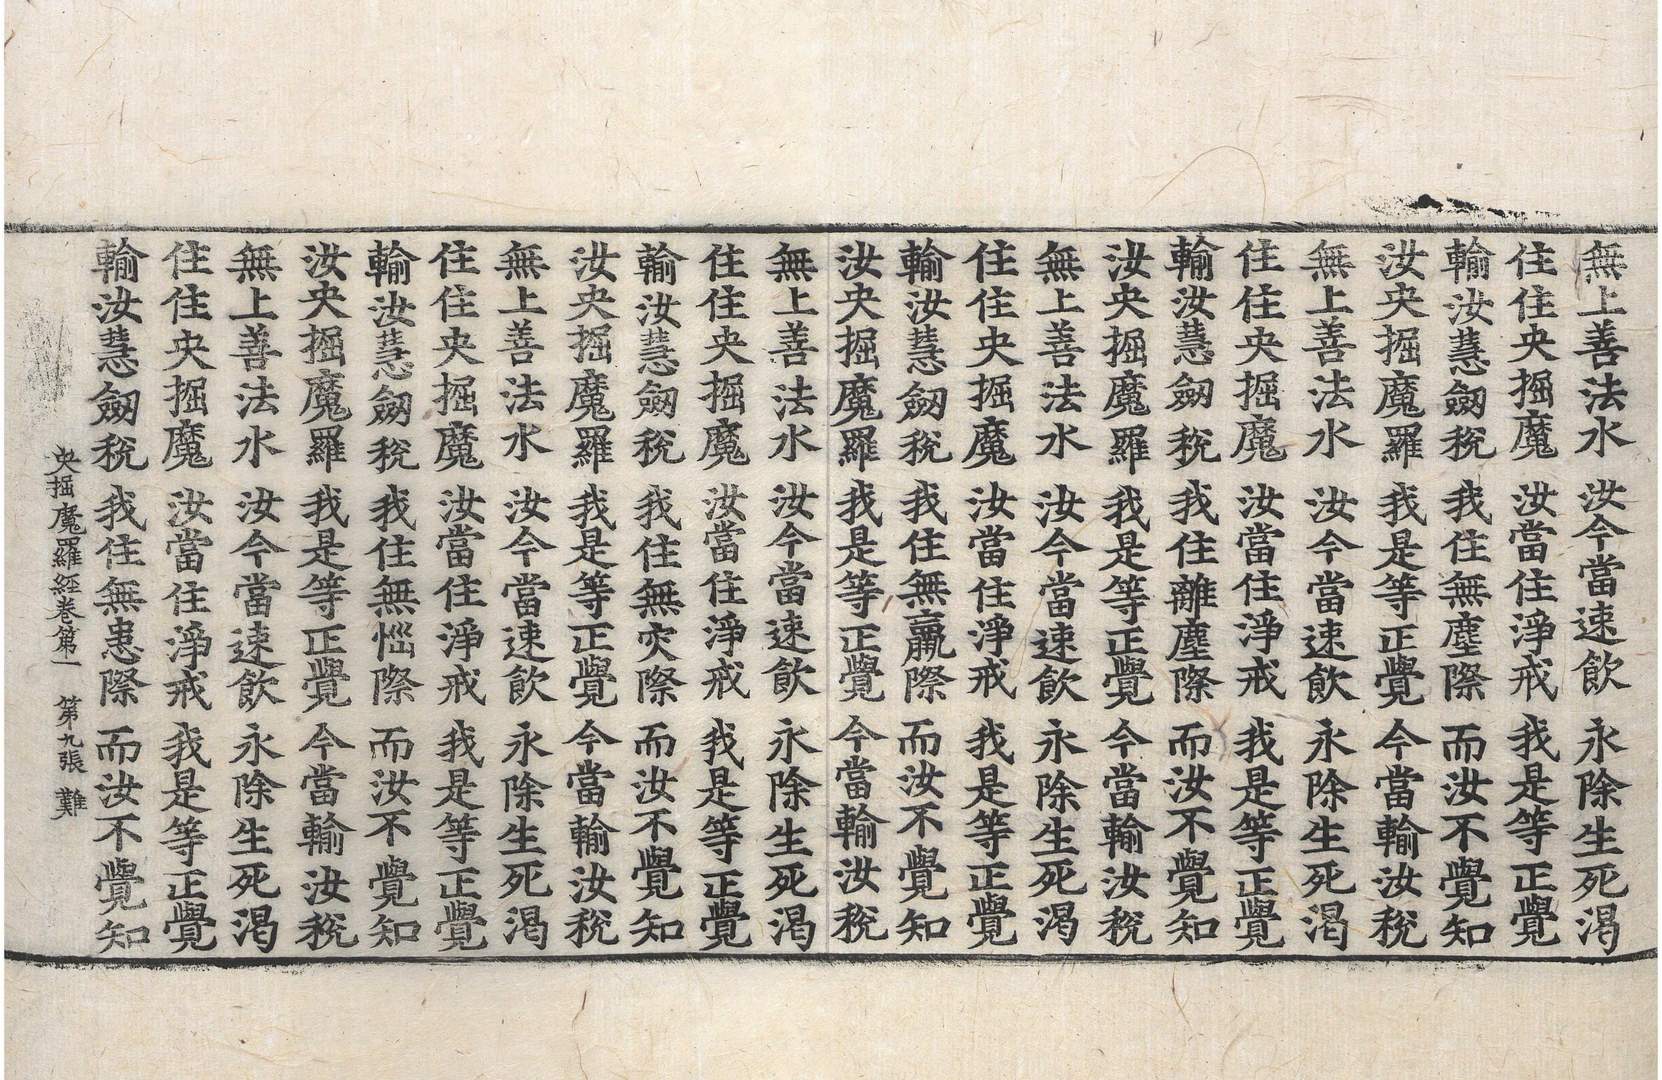 無上善法水 汝今當速飮 永除生死渴
住住央掘魔 汝當住淨戒 我是等正覺
輸汝慧劒稅 我住無塵際 而汝不覺知
汝央掘魔羅 我是等正覺 今當輸汝稅
無上善法水 汝今當速飮 永除生死渴
住住央掘魔 汝當住淨戒 我是等正覺
輸汝慧劒稅 我住離塵際 而汝不覺知
汝央掘魔羅 我是等正覺 今當輸汝稅
無上善法水 汝今當速飮 永除生死渴
住住央掘魔 汝當住淨戒 我是等正覺
輸汝慧劒稅 我住無羸際 而汝不覺知
汝央掘魔羅 我是等正覺 今當輸汝稅
無上善法水 汝今當速飮 永除生死渴
住住央掘魔 汝當住淨戒 我是等正覺
輸汝慧劒稅 我住無灾際 而汝不覺知
汝央掘魔羅 我是等正覺 今當輸汝稅
無上善法水 汝今當速飮 永除生死渴
住住央掘魔 汝當住淨戒 我是等正覺
輸汝慧劒稅 我住無惱際 而汝不覺知
汝央掘魔羅 我是等正覺 今當輸汝稅
無上善法水 汝今當速飮 永除生死渴
住住央掘魔 汝當住淨戒 我是等正覺
輸汝慧劒稅 我住無患際 而汝不覺知
央掘魔羅經卷第一 第九張 難